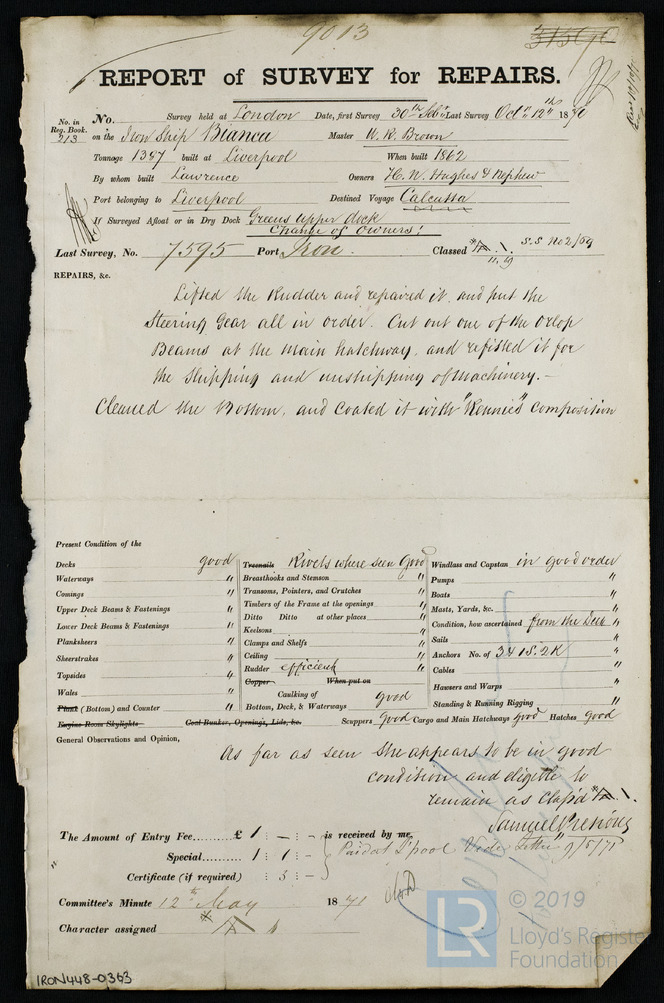 9013
REPORT of SURVEY for REPAIRS.
No. in Reg. Book. 213
No. Survey held at London Date, first Survey 30th Last Survey Octr 12th 1870
on the Iron Ship Bianca Master W. R. Brown
Tonnage 1387 built at Liverpool When built 1862
By whom built Lawrence Owners H. N. Hughes & Nephew
Port belonging to Liverpool Destined Voyage Calcutta
If Surveyed Afloat or in Dry Dock Greens upper dock
Change of Owners!
Last Survey, No. 7595 Port Iron. Classed A.1. S.S. No 2/69
REPAIRS, &c.
Lifted the Rudder and repaired it, and put the
Steering Gear all in order. Cut out one of the Orlop
Beams at the Main hatchway, and refitted it for
the Shipping and unshipping of Machinery.-
Cleaned the Bottom, and Coated it with "Rennie's" Composition
Present Condition of the
Decks good
Waterways "
Comings "
Upper Deck Beams & Fastenings "
Lower Deck Beams & Fastenings "
Planksheers "
Sheerstrakes "
Topsides "
Wales "
Plank (Bottom) and Counter "
Engine Room Skylights Coal Bunker, Openings, Lids, &c.
Treenails Rivets where seen Good
Breasthooks and Stemson "
Transoms, Pointers, and Crutches "
Timbers of the Frame at the openings "
Ditto Ditto at other places "
Keelsons "
Clamps and Shelfs "
Ceiling "
Rudder efficient "
Copper When put on
Caulking of
Bottom, Deck, & Waterways good
Windlass and Capstan in good order
Pumps "
Boats "
Masts, Yards, &c. "
Condition, how ascertained from the Deck "
Sails "
Anchors No. of 3B 1S. 2K "
Cables "
Hawsers and Warps "
Standing & Running Rigging "
Scuppers good Cargo and Main Hatchways good Hatches good
General Observations and Opinion,
As far as seen She appears to be in good
condition and eligible to
remain as Class'd A.1.
The Amount of Entry Fee.......... £ 1 : - : - is received by me,
Special.......... 1 : 1 : -
Certificate (if required) : 5 : -
Paid at L'pool Vide Letter 9/5/71
Committee's Minute 12th May 1871
Character assigned A 1
IRON448-0363
LR
© 2019
Lloyd's Register
Foundation